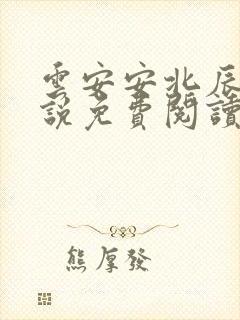 雲安安北辰
說免費閱讀
熊厚發